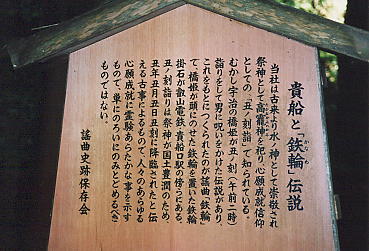 貴船と「鉄輪」伝説
かなわ
当社は古来より水ノ神として崇敬され
祭神として高龗神を祀り、心願成就信仰
としての「丑ノ刻詣」で知られている。
むかし宇治の橋姫が丑ノ刻(午前二時)
詣りをして男に呪いをかけた伝説があり、
これをもとにつくられたのが謡曲「鉄輪」
で、橋姫が頭にのせた鉄輪を置いた鉄輪
掛石が叡山電鉄・貴船口駅の傍らにある。
丑ノ刻詣りは祭神が国土豊潤のため
丑年丑月丑日丑刻に降臨されたと伝
える古事によるもので、人々のあらゆる
心願成就に霊験あらたかな事を示す
もので、単にのろいにのみとどめるべき
ものではない。
謡曲史跡保存会